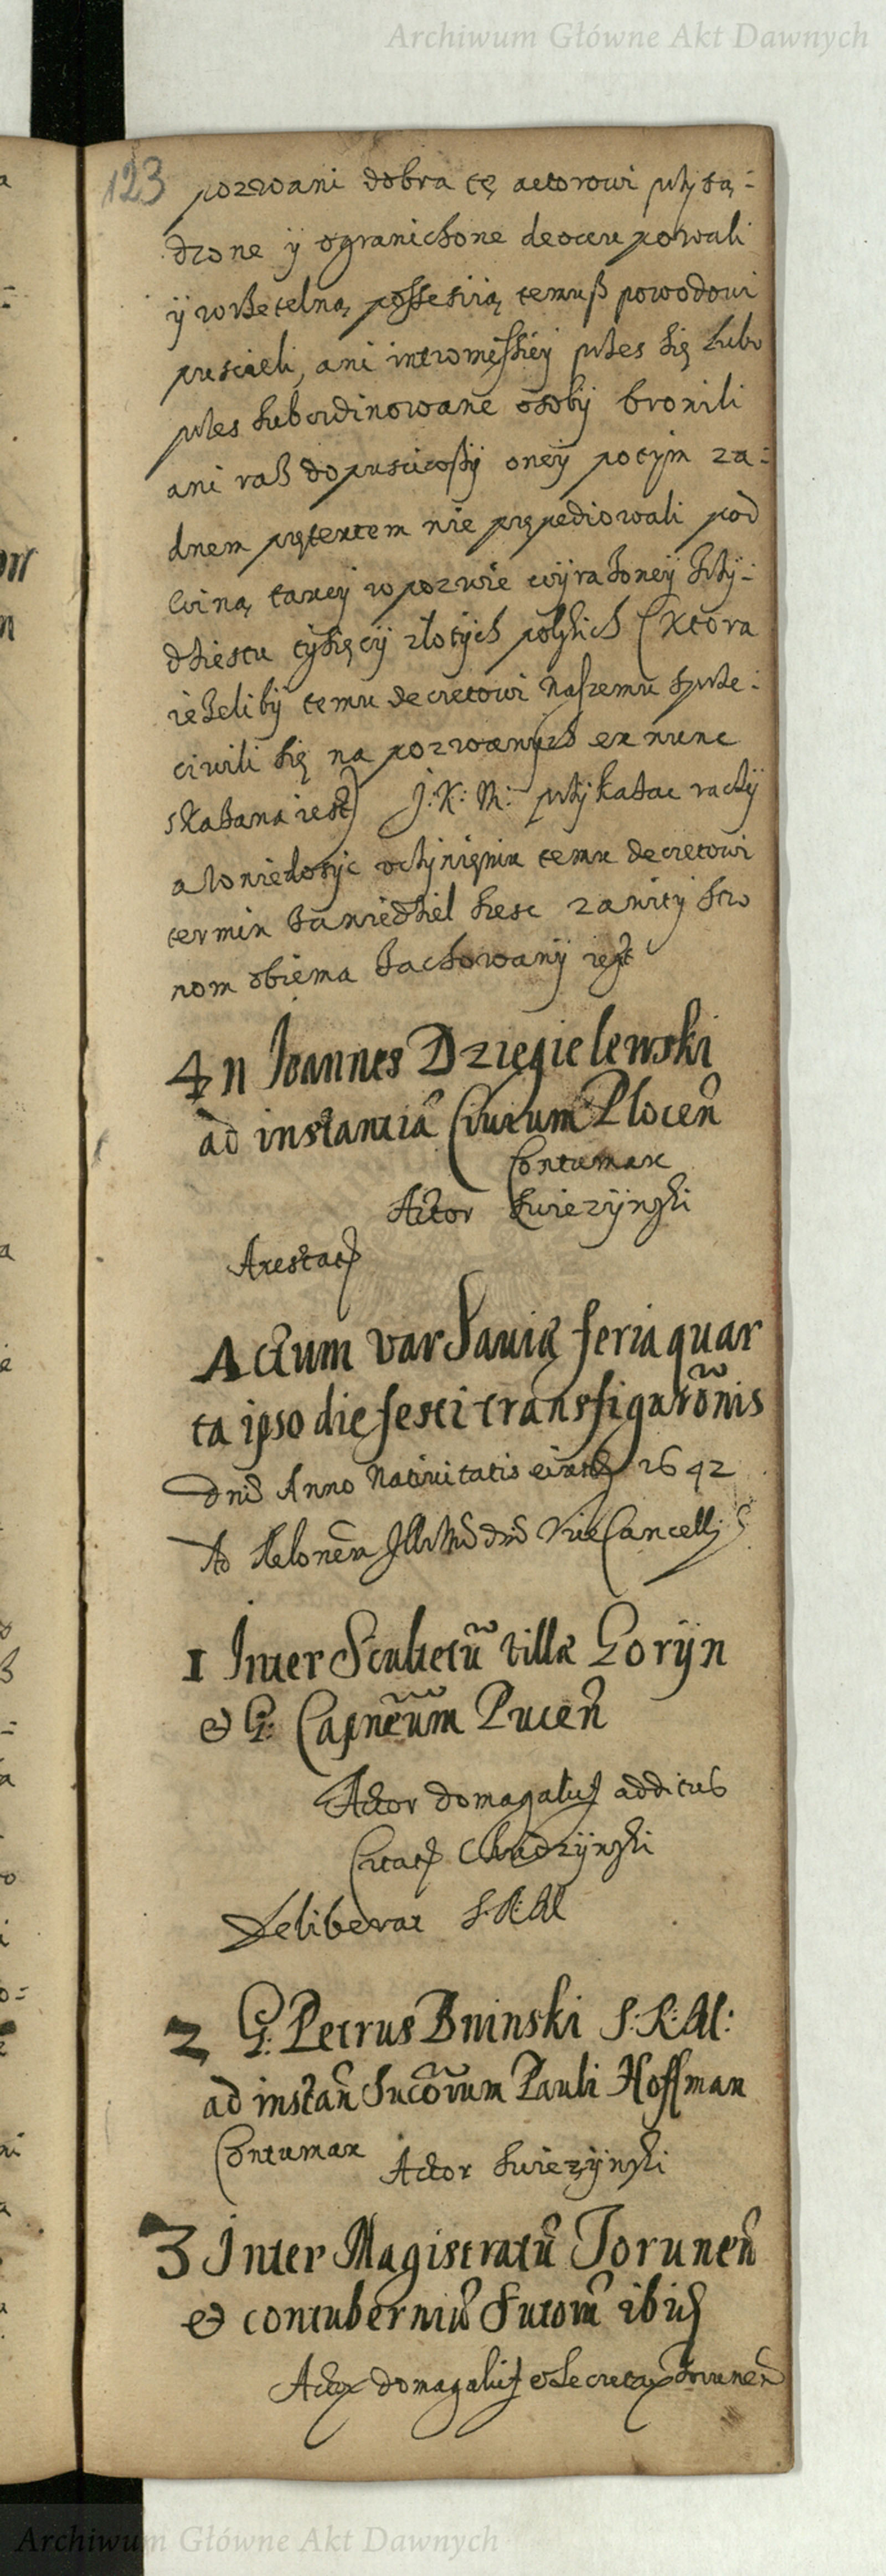 Archiwum Główne Akt Dawnych
123
pozwani dobra tę actorowi przysą-
dzone y ograniczone deoccupowali
y rzetelną possessią temuß powodowi
puscieli, ani intromissiey przes się lubo
przes subordinowane osoby bronili
ani raß dopusciwszy oney potym ża-
dnem prętextem nie pręped iowali pod
winą takey w pozwie wyrażoney trzy-
dziestu tysięcy złotych polskich (ktora
ieżeliby temu decretowi naszemu sprze-
ciwili się na pozwanych ex nunc
skazana iest) J: K: M: przykazac raczy
a o niedosyc uczynięniu temu decretowi
termin za niedziel szesc zawity stro
nom obiema zachowany iest
4 n Joannes Dziegielewski
ad instantiã Civium Plocen̄
Contumax
Actor Swiezynski
Arestaty
Actum varsaviæ feria quar
ta ipso die festi transfigurõnis
Dni Anno Nativitatis eiusdem 1642
Ad Relonem Illrmi dni Vice Cancellÿ
1 Inter Scultetũ villæ Goryn
& G: Capneũm Pucen̄
Actor domagalicz additus
Citaty Chudzynski
Deliberat S. R. M
2 G: Petrus Bninski S: R: M:
ad instañ Sucõrum Pauli Hoffman
Contumax Actor Swiezynski
3 Inter Magistratũ Torunen̄
& contuberniũ Sutorũ ibid
Actor domagalicz & Secretar Torunen̄
Archiwum Główne Akt Dawnych